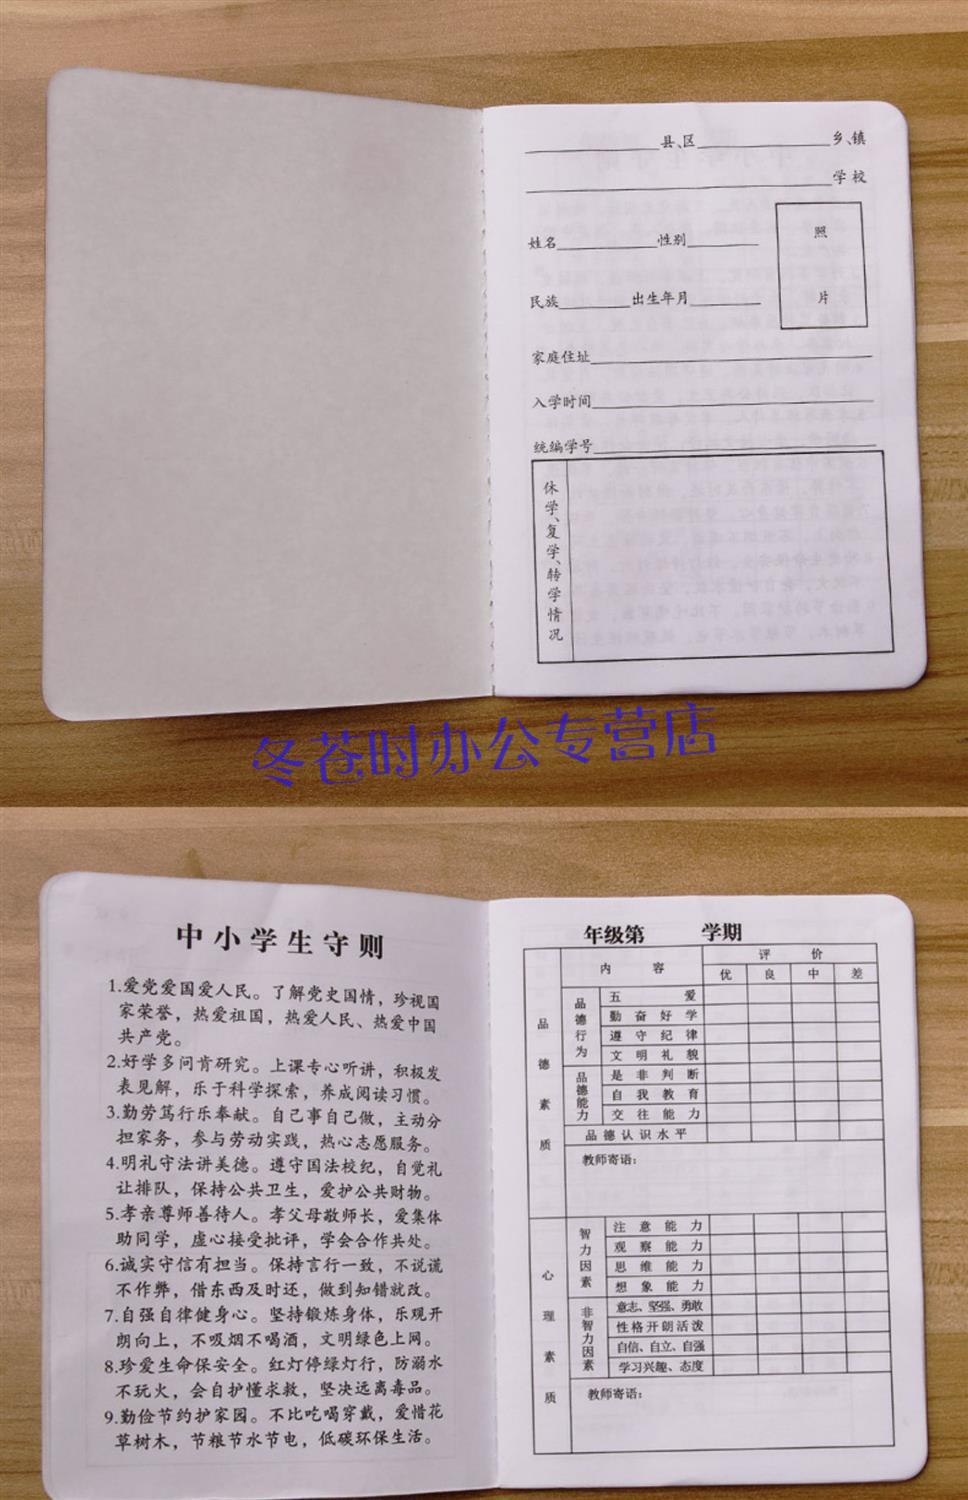 县、区 乡、镇
学校
照
姓名 性别
片
民族 出生年月
家庭住址
入学时间
统编学号
休学、复学、转学情况
冬苍时办公专营店
中小学生守则
1.爱党爱国爱人民。了解党史国情，珍视国
家荣誉，热爱祖国，热爱人民、热爱中国
共产党。
2.好学多问肯研究。上课专心听讲，积极发
表见解，乐于科学探索，养成阅读习惯。
3.勤劳笃行乐奉献。自己事自己做，主动分
担家务，参与劳动实践，热心志愿服务。
4.明礼守法讲美德。遵守国法校纪，自觉礼
让排队，保持公共卫生，爱护公共财物。
5.孝亲尊师善待人。孝父母敬师长，爱集体
助同学，虚心接受批评，学会合作共处。
6.诚实守信有担当。保持言行一致，不说谎
不作弊，借东西及时还，做到知错就改。
7.自强自律健身心。坚持锻炼身体，乐观开
朗向上，不吸烟不喝酒，文明绿色上网。
8.珍爱生命保安全。红灯停绿灯行，防溺水
不玩火，会自护懂求救，坚决远离毒品。
9.勤俭节约护家园。不比吃喝穿戴，爱惜花
草树木，节粮节水节电，低碳环保生活。
年级第 学期
内容 评价
优 良 中 差
品德素质
品德行为
五爱
勤奋好学
遵守纪律
文明礼貌
品德能力
是非判断
自我教育
交往能力
品德认识水平
教师寄语：
心理素质
智力因素
注意能力
观察能力
思维能力
想象能力
非智力因素
意志、坚强、勇敢
性格开朗活泼
自信、自立、自强
学习兴趣、态度
教师寄语：